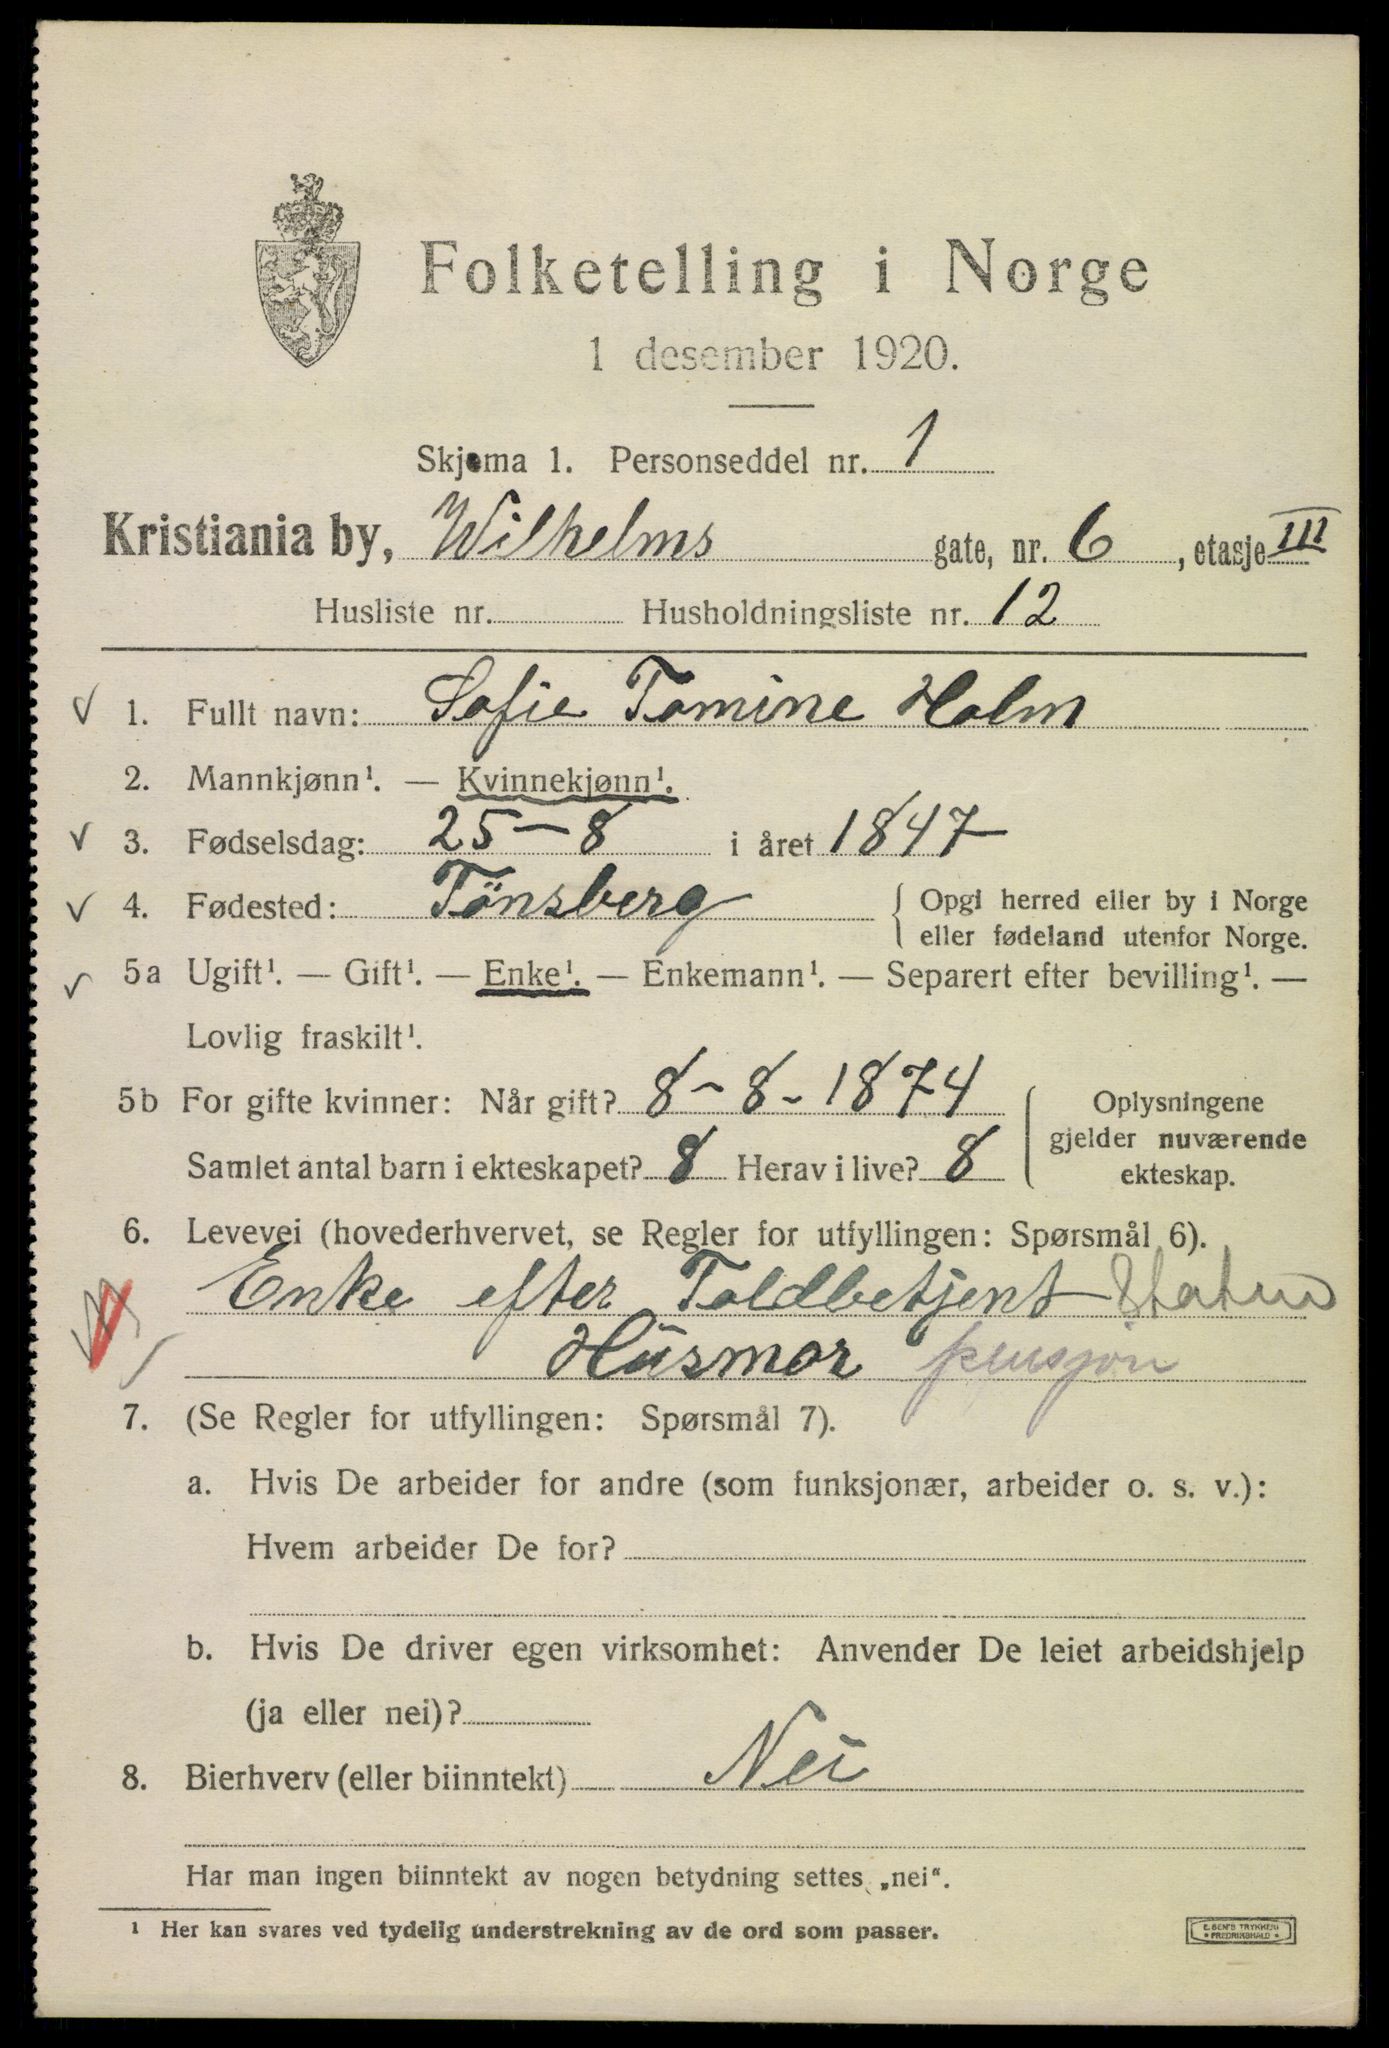 Folketelling i Norge
1 desember 1920.
Skjema 1. Personseddel nr. 1
Kristiania by, Wilhelms gate, nr. 6, etasje III
Husliste nr. Husholdningsliste nr. 12
1. Fullt navn: Sofie Tomine Holm
2. Mannkjønn¹. — Kvinnekjønn¹.
3. Fødselsdag: 25-8 i året 1847
4. Fødested: Tönsberg { Opgi herred eller by i Norge
eller fødeland utenfor Norge.
5a Ugift¹. — Gift¹. — Enke¹. — Enkemann¹. — Separert efter bevilling¹. —
Lovlig fraskilt¹.
5b For gifte kvinner: Når gift? 8-8-1874 { Oplysningene
gjelder nuværende
Samlet antal barn i ekteskapet? 8 Herav i live? 8
ekteskap.
6. Levevei (hovederhvervet, se Regler for utfyllingen: Spørsmål 6).
Enke efter Toldbetjent Statens
Husmor pensjon
7. (Se Regler for utfyllingen: Spørsmål 7).
a. Hvis De arbeider for andre (som funksjonær, arbeider o. s. v.):
Hvem arbeider De for?
b. Hvis De driver egen virksomhet: Anvender De leiet arbeidshjelp
(ja eller nei)?
8. Bierhverv (eller biinntekt) Nei
Har man ingen biinntekt av nogen betydning settes „nei“.
¹ Her kan svares ved tydelig understrekning av de ord som passer.
FREDRIKSHALD